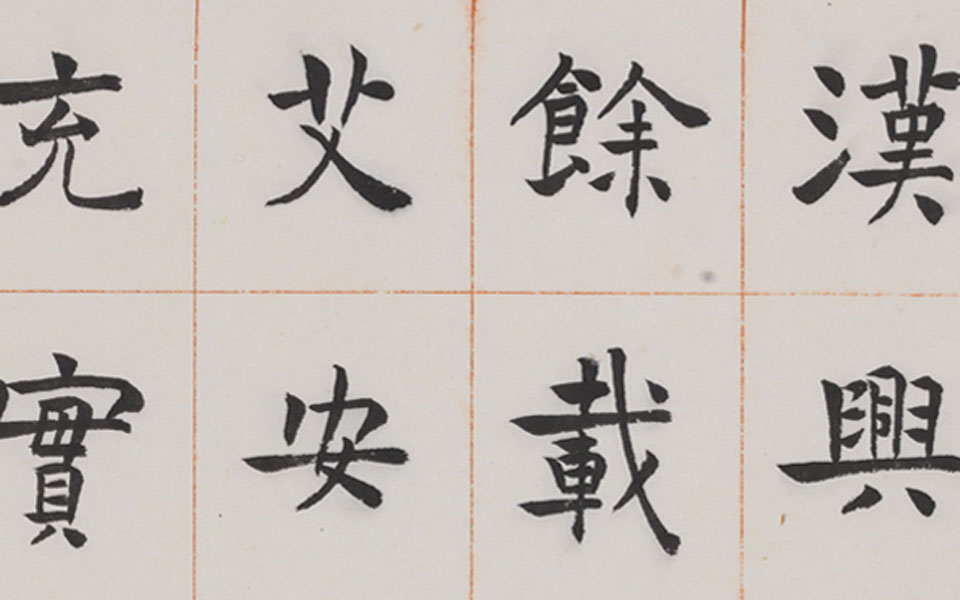 漢興
餘載
艾安
充實